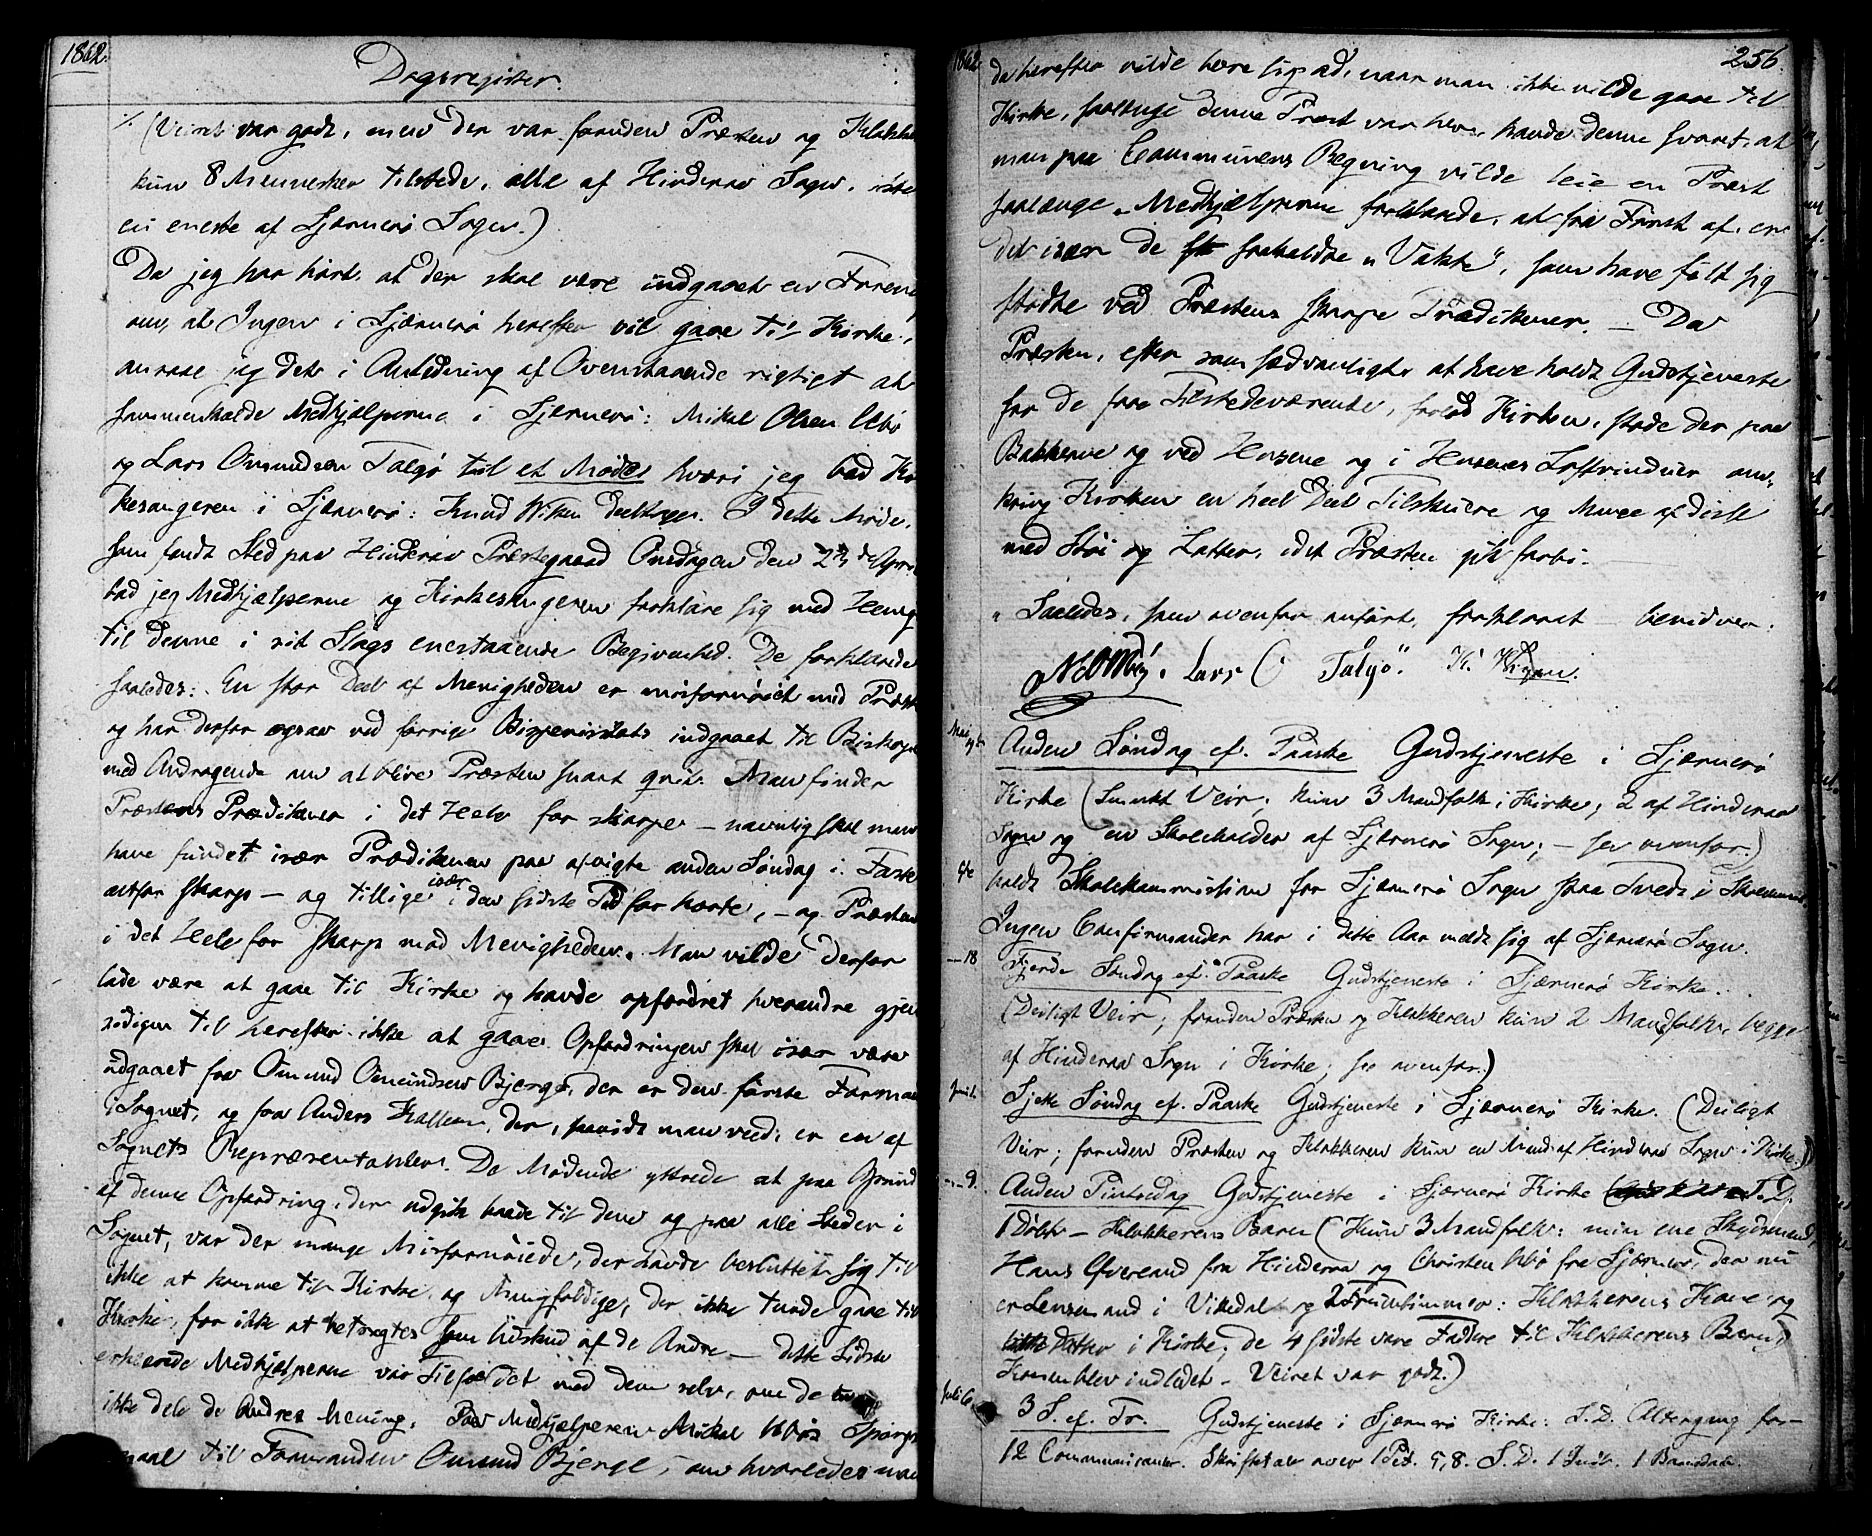 1862.
Dagsregister.
/. (Veiret var godt, men der var foruden Præsten og Klokker
kun 8 Mennesker tilstede, alle af Hinderaa Sogn, ikke
en eneste af Sjærnerø Sogn.)
Da jeg har hört, at der skal være indgaaet en Forening
om, at Ingen i Sjærnerø herefter vil gaae til Kirke,
ansaae jeg det i Anledning af Ovenstaaende rigtigt at
sammenkalde Medhjælperne i Sjærnerø: Mikal Olsen Ubø
og Lars Omundsen Talgø til et Møde hvori jeg bad Kir
kesangeren i Sjærnerø: Knud Deeltager. I dette Møde,
som fandt Sted paa Hinderaa Præstegaard Onsdagen den de April
bad jeg Medhjælperne og Kirkesangeren forklare sig med Hensyn
til denne i sit Slags enestaaende Begivenhed. De forklarede
saaledes: En stor Deel af Menigheden er misfornøiet med Præsten
og har derfor ogsaa ved forrige Bispevisitats indgaaet til Biskopen
med Andragende om at blive Præsten snart qvit. Man finder
Præstens Prædikener i det Hele for skarpe – navnlig skal man
have fundet især Prædikenen paa afvigte anden Søndag i Faste
altfor skarp – og tillige især i den sidste Tid for korte, – og Præsten
i det Hele for skarp mod Menigheden. Man vilde derfor
lade være at gaae til Kirke og havde opfordret hverandre gjen
sidigen til herefter ikke at gaae. Opfordringen skal især være
udgaaet fra Omund Omundsen Bjerge, der er den første Formand
i Sognet, og fra Anders der, saavidt man veed, er en af
Sognets Repræsentanter. De Mødende yttrede at paa Grund
af denne Opfordring, der udgik baade til dem og paa alle Steder i
Sognet, var der mange Misfornøiede, der havde besluttet sig til
ikke at komme til Kirke, og Mangfoldige, der ikke turde gaae til
Kirke, for ikke at betragtes som Udskud af de Andre – dette Sidste
erklærede Medhjælperne var Tilfældet med dem selv, om de
ikke dele de Andres Mening. Paa Medhjælperen Mikal Ubøs Spørgs
maal til Formanden Omund Bjerge, om hvorledes man
1862
256.
da herefter vilde bære sig ad, naar man ikke vilde gaae til
Kirke, saalænge denne Præst var her, havde denne svaret, at
man paa Communens Regning vilde leie en Præst
saalænge. Medhjælperne forklarede, at fra Først af er
det især de saakaldte "Vakte", som have følt sig
stødte ved Præstens skarpe Prædikener. – Da
Præsten, efter som sædvanligt at have holdt Gudstjeneste
for de faae Tilstedeværende, forlod Kirken, stode der paa
Bakkerne og ved Husene og i Husenes Loftvinduer om,
kring Kirken en heel Deel Tilskuere og Mange af disse
med Støi og Latter, idet Præsten gik forbi. –
" Saaledes, som ovenfor anført, forklaret – bevidner:
Lars Talgø. K.
Mai
Anden Søndag ef. Paaske Gudstjeneste i Sjærnerø
Kirke (Smukt Veir; kun 3 Mandfolk i Kirke; 2 af Hinderaa
Sogn og en Skoleholder af Sjærnerø Sogn; – see ovenfor.)
holdt Skolekommission for Sjærnerø Sogn paa
Ingen Confirmander har i dette Aar meldt sig af Sjærnerø Sogn.
– 18
Fjerde Søndag ef. Paaske Gudstjeneste i Sjærnerø Kirke.
(Deiligt Veir; foruden Præsten og Klokkeren kun 2 Mandfolk, begge
af Hinderaa Sogn i Kirke; see ovenfor.)
Juni 1.
Sjette Søndag ef. Paaske Gudstjeneste i Sjærnerø Kirke. (Deiligt
Veir; foruden Præsten og Klokkeren kun en Mand af Hinderaa Sogn i Kirke.)
– 9.
Anden Pintsedag Gudstjeneste i Sjærnerø Kirke S. D.
1 Døbt – Klokkerens Barn (Kun 3 Mandfolk: min ene Skydsmand,
Hans Øvreland fra Hinderaa og Christen Ubø fra Sjærnerø, der nu
er Lensmand i Vikedal og 2 Fruentimmer: Klokkerens Kone og
Datter i Kirke; de 4 sidste vare Faddere til Klokkerens Barn;
Konen blev indledet – Veiret var godt.)
Juli 6.
3 S. ef. Tr. Gudstjeneste i Sjærnerø Kirke: S. D. Altergang for
12 Communicanter. Skriftetale over 1 Pet. 5,8. S. D. 1 Indl. 1 Barnedaab.